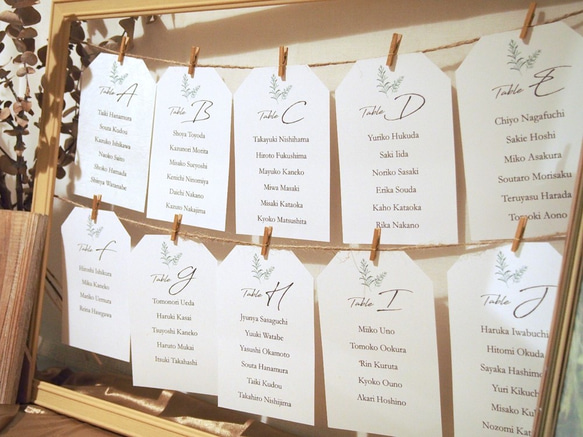 Table A
Taiki Hanamura
Souta Kudou
Kazuko Ishikawa
Naoko Saito
Shoko Hamada
Shinya Watanabe
Table B
Shoya Toyoda
Kazunori Morita
Misako Sueyoshi
Kenichi Ninomiya
Daichi Nakano
Kazuto Nakajima
Table C
Takayuki Nishihama
Hiroto Fukushima
Mayuko Kaneko
Miwa Masaki
Misaki Kataoka
Kyoko Matsushita
Table D
Yuriko Hukuda
Saki Iida
Noriko Sasaki
Erika Souda
Kaho Kataoka
Rika Nakano
Table E
Chiyo Nagafuchi
Sakie Hoshi
Miko Asakura
Soutaro Morisaku
Teruyasu Harada
Tomoki Aono
Table F
Hitoshi Ishikura
Miku Kaneko
Mariko Uemura
Hasegawa
Table G
Tomonori Ueda
Haruki Kasai
Tsuyoshi Kaneko
Haruto Mukai
Itsuki Takahashi
Table H
Jyunya Sataguchi
Yuuki Watabe
Yasushi Okamoto
Souta Hanamura
Taiki Kudou
Takahiro Nishijima
Table I
Miiko Uno
Tomoko Ookura
Rin Kuruta
Kyoko Ouno
Akari Hoshino
Table J
Haruka Iwabuchi
Hitomi Okuda
Sayaka Hashimo
Yuri Kikuch
Misako Ku
Nozomi Kat